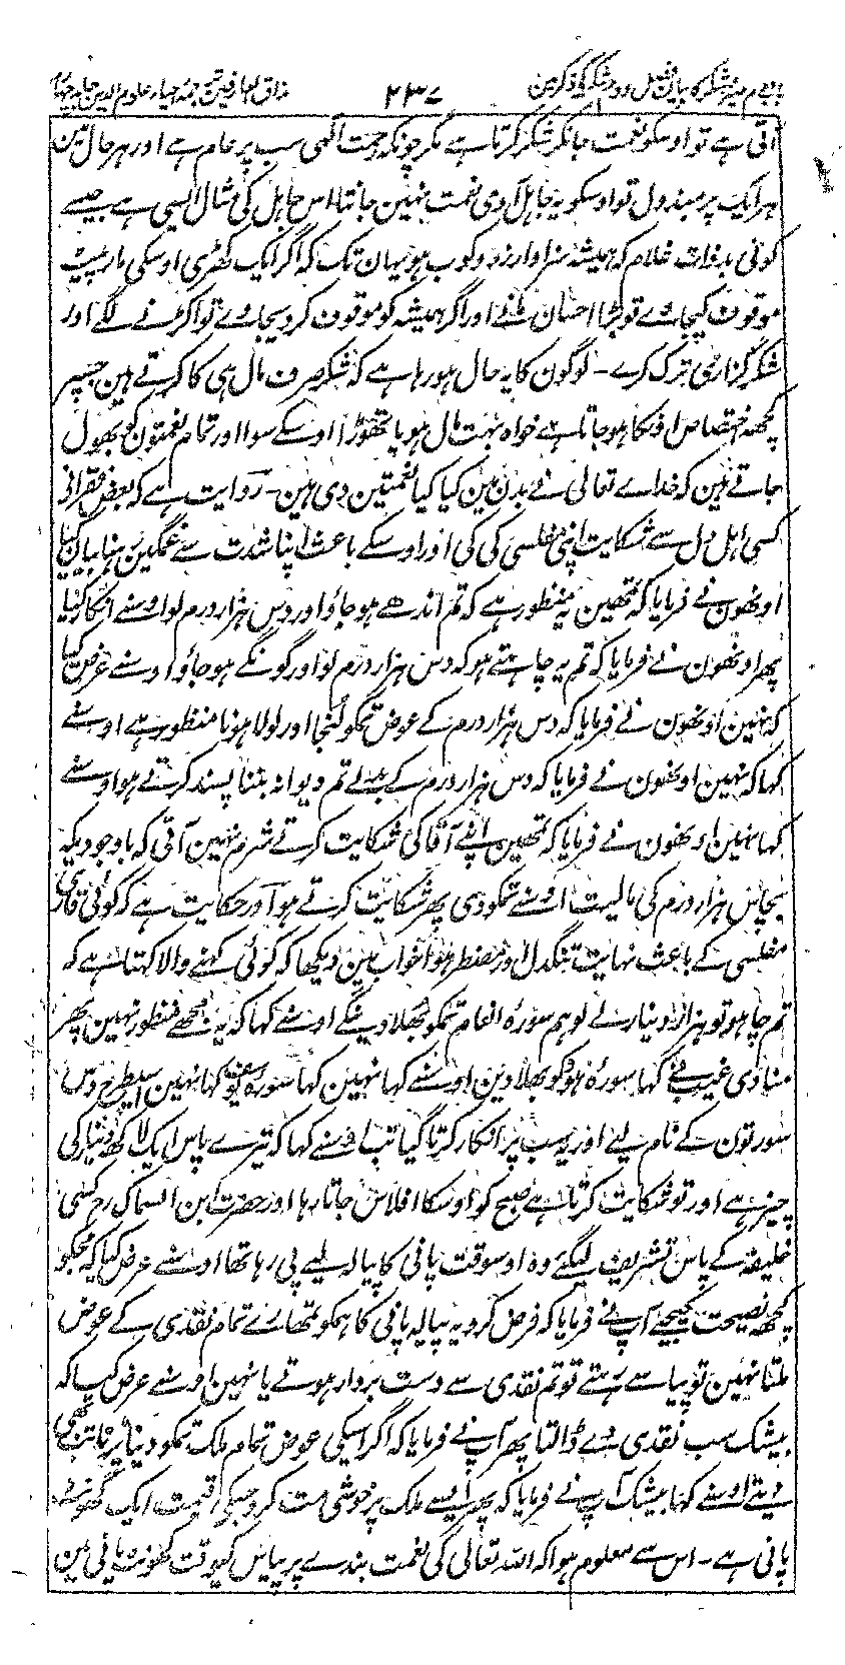 باب دوم صبر و شکر کا بیان فصل دوم شکر کے ذکر مین ۲۳۷ مذاق العارفین ترجمہ احیاء علوم الدین جلد چہارم
آتی ہے تو اوسکو نعمت جانکر شکر کرتا ہے مگر چونکہ رحمت الٰہی سب پر عام ہے اور ہر حال مین
ہر ایک پر مبذول تو اوسکو یہ جاہل آدمی نعمت نہین جانتا اس جاہل کی مثال ایسی ہے جیسے
کوئی بدذات غلام کہ ہمیشہ سزاوار زد و کوب ہو یہان تک کہ اگر ایک گھڑی اوسکی مار پیٹ
موقوف کیجاوے تو بڑا احسان مانے اور اگر ہمیشہ کو موقوف کر دیجاوے تو اکڑنے لگے اور
شکر گزاری ترک کرے ۔ لوگون کا یہ حال ہو رہا ہے کہ شکر صرف مال ہی کا کرتے ہین جسپر
کچھہ اختصاص اونکا ہو جاتا ہے خواہ بہت مال ہو یا تھوڑا اوسکے سوا اور تمام نعمتون کو بھول
جاتے ہین کہ خداے تعالی نے بدن مین کیا کیا نعمتین دی ہین ۔ روایت ہے کہ بعض فقرا نے
کسی اہل دل سے شکایت اپنی مفلسی کی کی اور اوسکے باعث اپنا شدت سے غمگین رہنا بیان کیا
اونھون نے فرمایا کہ تمھین یہ منظور ہے کہ تم اندھے ہو جاؤ اور دس ہزار درم لو اوسنے انکار کیا
پھر اونھون نے فرمایا کہ تم یہ چاہتے ہو کہ دس ہزار درم لو اور گونگے ہو جاؤ اوسنے عرض کیا
کہ نہین اونھون نے فرمایا کہ دس ہزار درم کے عوض تمکو لنجا اور لولا ہونا منظور ہے اوسنے
کہا کہ نہین اونھون نے فرمایا کہ دس ہزار درم کے بدلے تم دیوانہ بننا پسند کرتے ہو اوسنے
کہا نہین اونھون نے فرمایا کہ تمھین اپنے آقا کی شکایت کرتے شرم نہین آتی کہ باوجودیکہ
پچاس ہزار درم کی مالیت اوسنے تمکو دی پھر شکایت کرتے ہو اور حکایت ہے کہ کوئی قاری
مفلسی کے باعث نہایت تنگدل اور مضطر ہوا خواب مین دیکھا کہ کوئی کہنے والا کہتا ہے کہ
تم چاہو تو ہزار دینار لے لو ہم سورۂ انعام تمکو بھلا دینگے اوسنے کہا کہ یہ مجھے منظور نہین پھر
منادی غیب نے کہا سورۂ ہود کو بھلا دین اوسنے کہا نہین کہا سورۂ یوسف کہا نہین اسیطرح دس
سورتون کے نام لیے اور یہ سب پر انکار کرتا گیا تب اوسنے کہا کہ تیرے پاس ایک لاکھ دینار کی
چیز ہے اور تو شکایت کرتا ہے صبح کو اوسکا افلاس جاتا رہا اور حضرت ابن السماک رح کسی
خلیفہ کے پاس تشریف لیگئے وہ اوسوقت پانی کا پیالہ لیے پی رہا تھا اوسنے عرض کیا کہ مجکو
کچھہ نصیحت کیجیے آپ نے فرمایا کہ فرض کرو یہ پیالہ پانی کا ہمکو تمھارے تمام نقدی کے عوض
ملتا نہین تو پیاسے رہتے تو تم نقدی سے دست بردار ہوتے یا نہین اوسنے عرض کیا کہ
بیشک سب نقدی دے ڈالتا پھر آپ نے فرمایا کہ اگر اسکی عوض تمام ملک تمکو دینا پڑتا تب بھی
دیتے اوسنے کہا بیشک آپ نے فرمایا کہ پھر ایسے ملک پر خوشی مت کرو جسکی قیمت ایک گھونٹ
پانی ہے ۔ اس سے معلوم ہوا کہ اللہ تعالی کی نعمت بندے پر پیاس کیوقت گھونٹ پانی مین